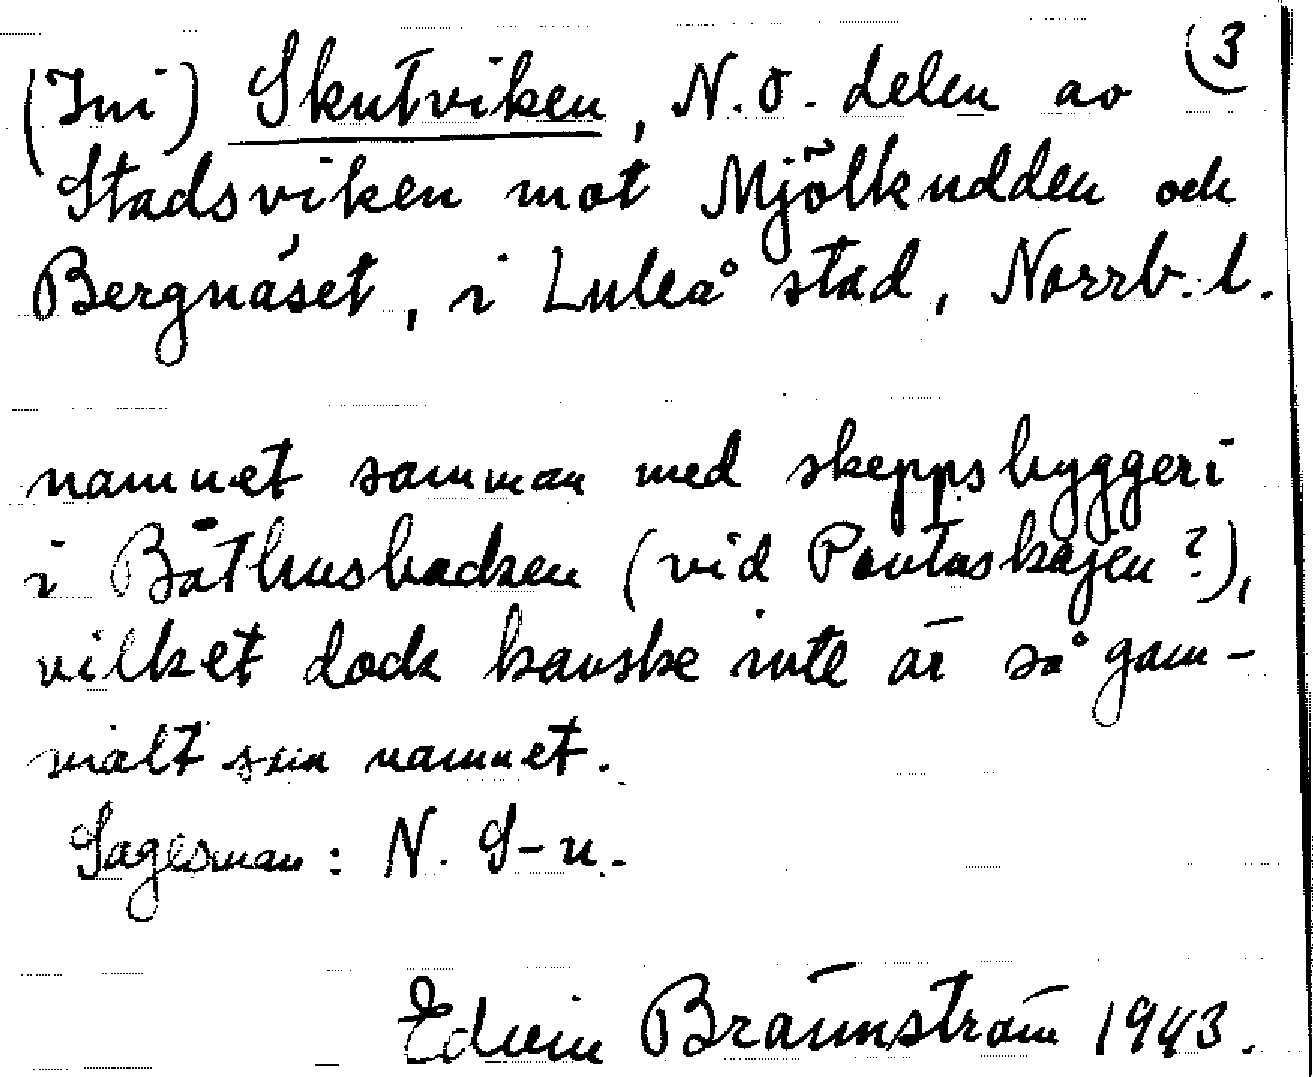 (3
(Inri) Skutviken, N.O. delen av
Stadsviken mot Mjölkudden och
Bergnäset, i Luleå stad, Norrb. l.
namnet samman med skeppsbyggeri
i Båthusbacken (vid Pontuskajen?),
vilket dock kanske inte är så gam-
malt som namnet.
Sagesman: N. S-n.
Edvin Brännström 1943.